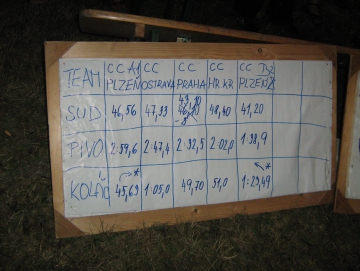 TEAM CC A1 PLZEŇ CC OSTRAVA CC PRAHA CC HR.KR. CC PLZEŇ
SUD 46,56 47,33 48,40 41,20
PIVO 2:59,6 2:47,4 2:32,5 2:02,0 1:38,9
KOLÁČ 45,63 * 1:05,0 49,70 51,0 1:29,49 *